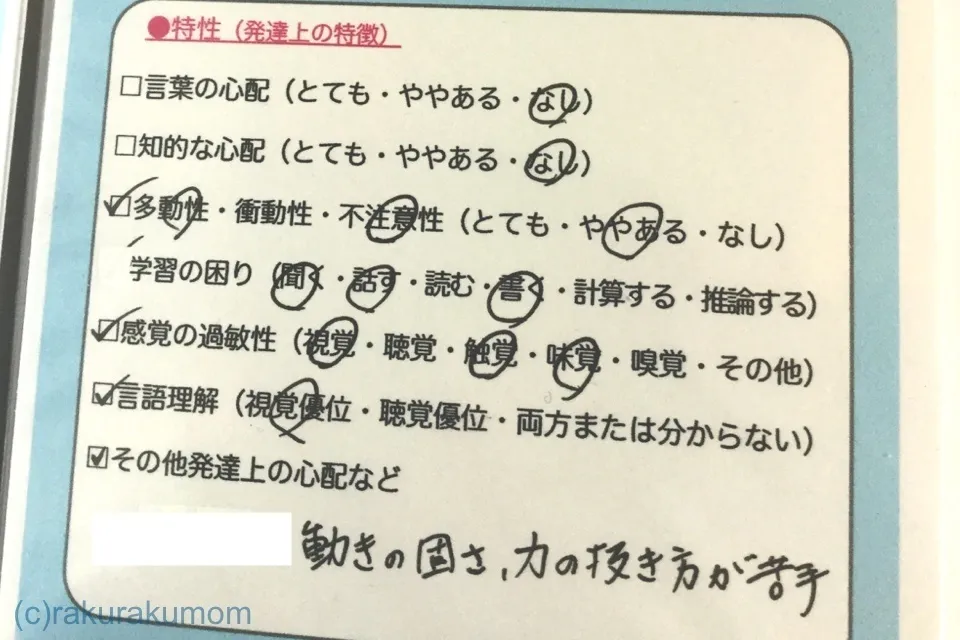 ●特性（発達上の特徴）
□言葉の心配（とても・ややある・なし）
□知的な心配（とても・ややある・なし）
☑多動性・衝動性・不注意性（とても・ややある・なし）
学習の困り（聞く・話す・読む・書く・計算する・推論する）
☑感覚の過敏性（視覚・聴覚・触覚・味覚・嗅覚・その他）
☑言語理解（視覚優位・聴覚優位・両方または分からない）
☑その他発達上の心配など
動きの固さ、力の抜き方が苦手
(c)rakurakumom